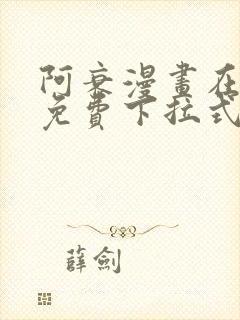 阿衰漫畫在
免費下拉式
薛劍